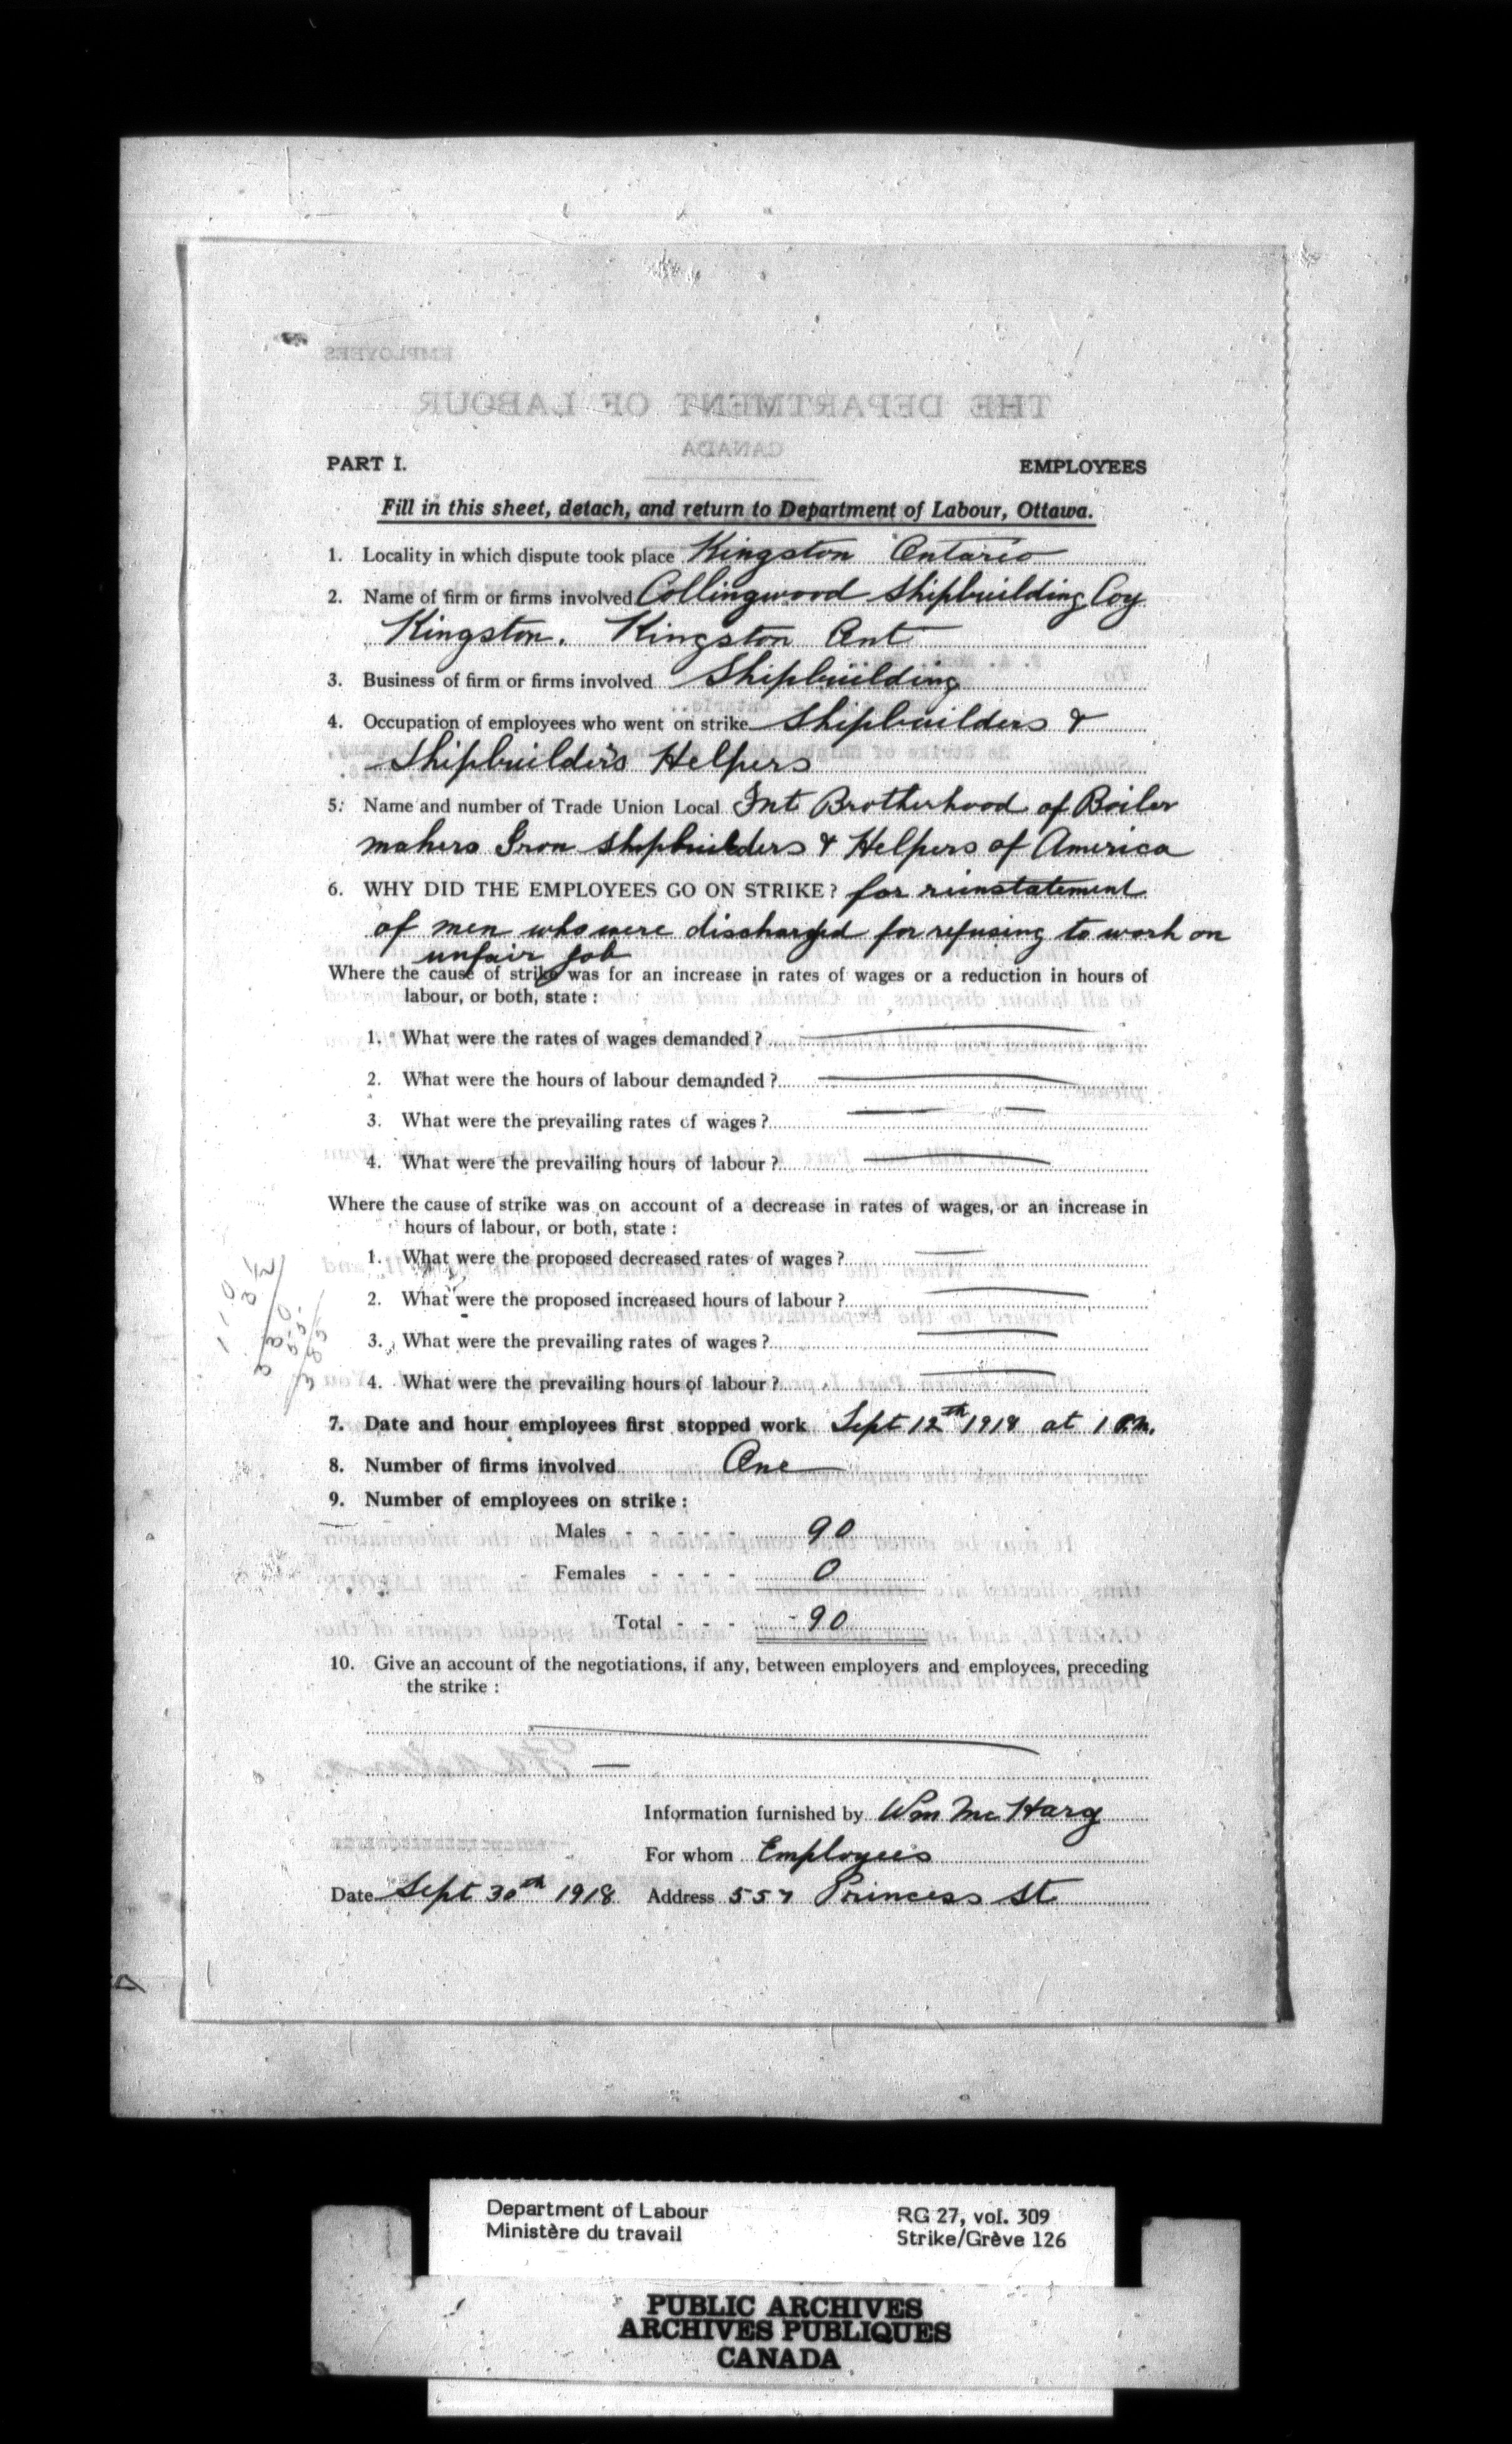 EMPLOYEES
THE DEPARTMENT OF LABOUR
CANADA
PART I. EMPLOYEES
Fill in this sheet, detach, and return to Department of Labour, Ottawa.
1. Locality in which dispute took place Kingston Ontario
2. Name of firm or firms involved Collingwood Shipbuilding Coy
Kingston. Kingston Ont
3. Business of firm or firms involved Shipbuilding
4. Occupation of employees who went on strike Shipbuilders &
Shipbuilders Helpers
5. Name and number of Trade Union Local Int Brotherhood of Boiler
makers Iron Shipbuilders & Helpers of America
6. WHY DID THE EMPLOYEES GO ON STRIKE? for reinstatement
of men who were discharged for refusing to work on
unfair job
Where the cause of strike was for an increase in rates of wages or a reduction in hours of
labour, or both, state :
1. What were the rates of wages demanded ?
2. What were the hours of labour demanded ?
3. What were the prevailing rates of wages ?
4. What were the prevailing hours of labour ?
Where the cause of strike was on account of a decrease in rates of wages, or an increase in
hours of labour, or both, state :
1. What were the proposed decreased rates of wages ?
2. What were the proposed increased hours of labour ?
3. What were the prevailing rates of wages ?
4. What were the prevailing hours of labour ?
110
3 1/2
330
55
385
7. Date and hour employees first stopped work Sept 12th 1918 at 1 P.M.
8. Number of firms involved One
9. Number of employees on strike :
Males - - - - - 90
Females - - - - 0
Total - - - 90
10. Give an account of the negotiations, if any, between employers and employees, preceding
the strike :
Information furnished by Wm McHarg
For whom Employees
Date Sept 30th 1918 Address 557 Princess St
Department of Labour RG 27, vol. 309
Ministère du travail Strike/Grève 126
PUBLIC ARCHIVES
ARCHIVES PUBLIQUES
CANADA